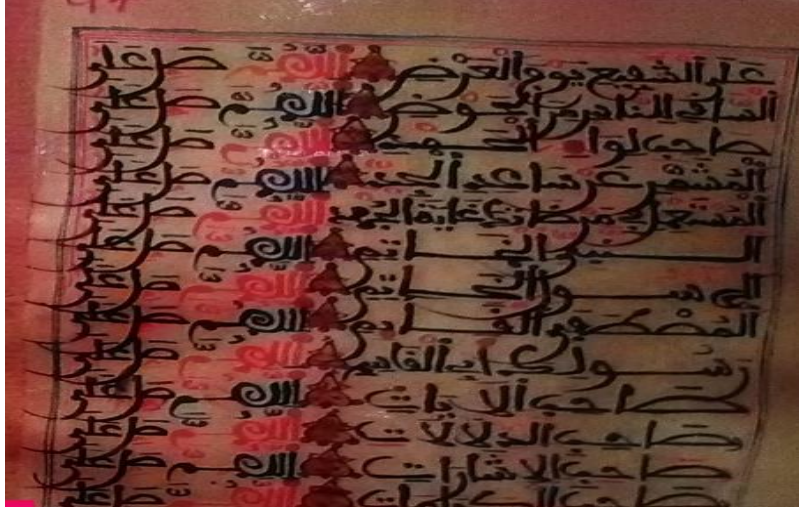 على الشفيع يوم العرض اللهم صل على
الساقي للناس من الحوض اللهم صل على
صاحب لواء الحمد اللهم صل على
المشمر عن ساعد الجد اللهم صل على
المستعمل في مرضاتك غاية الجهد اللهم صل على
النبي الخاتم اللهم صل على
الرسول الخاتم اللهم صل على
المصطفى القائم اللهم صل على
رسولك أبي القاسم اللهم صل على
صاحب الآيات اللهم صل على
صاحب الدلالات اللهم صل على
صاحب الإشارات اللهم صل على
صاحب الكرامات اللهم صل على